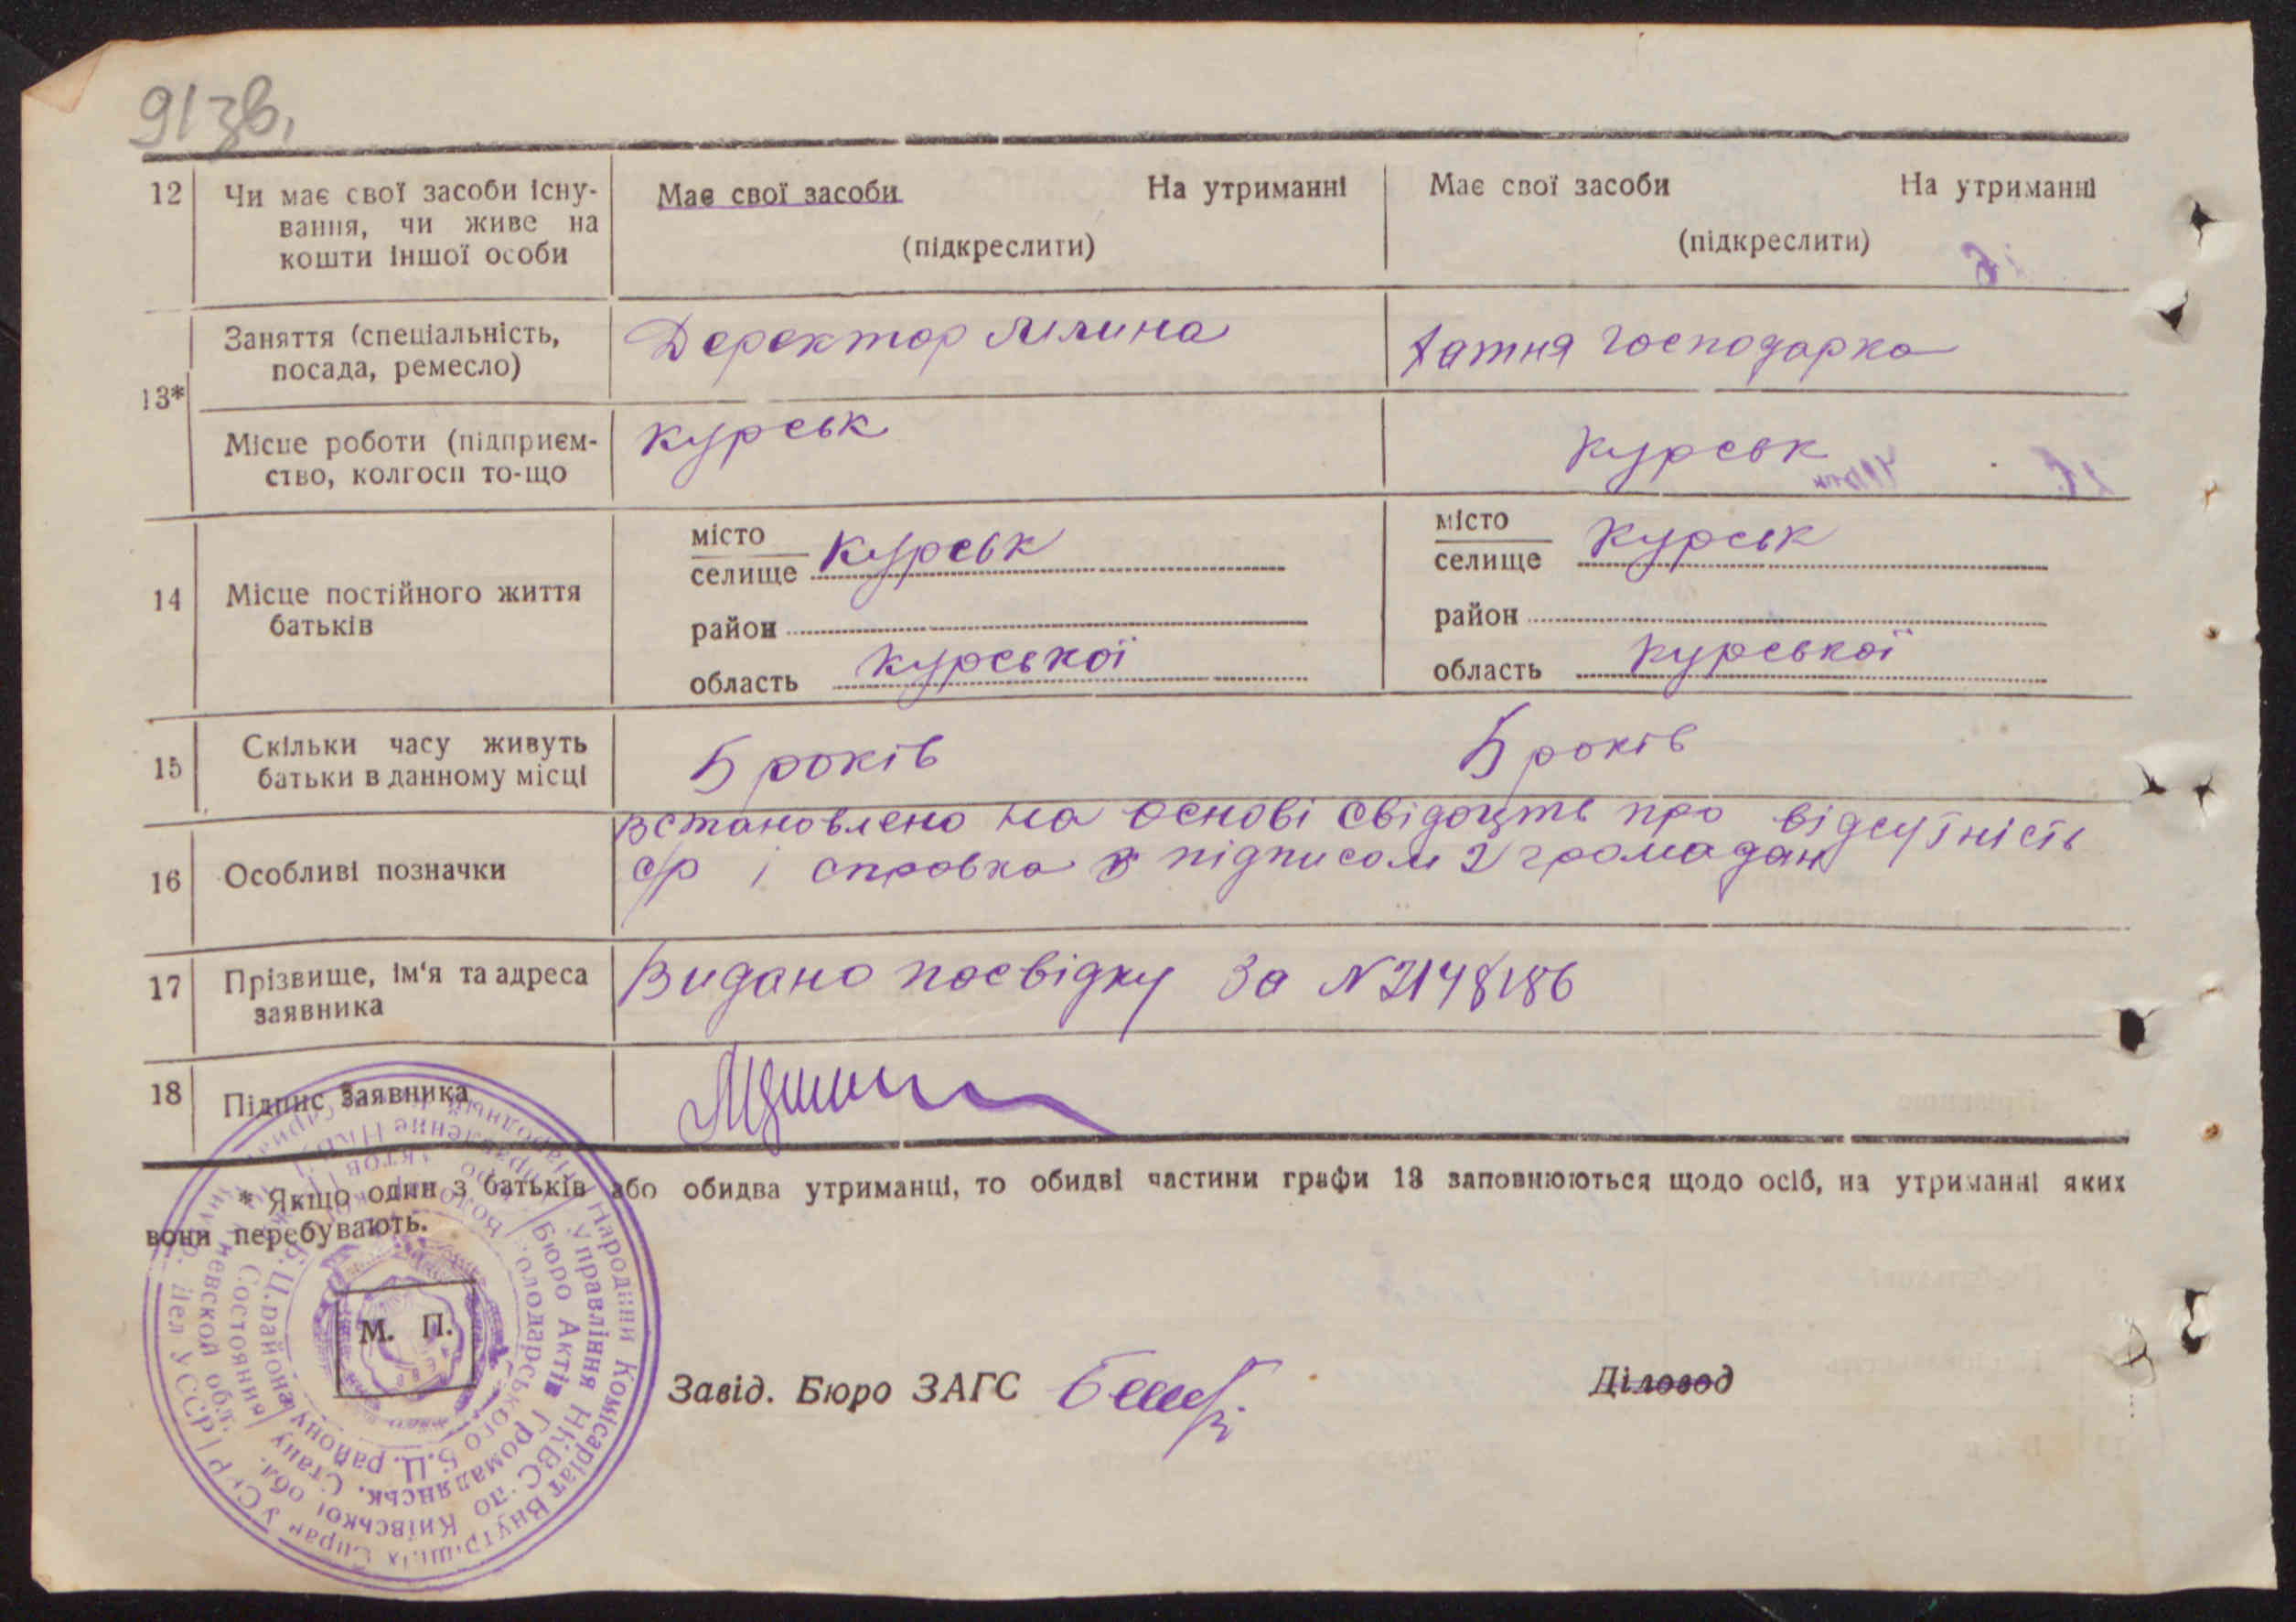 91зв.
12 Чи має свої засоби існу-
вання, чи живе на
кошти іншої особи
Має свої засоби На утриманні
(підкреслити)
Має свої засоби На утриманні
(підкреслити)
13*
Заняття (спеціальність,
посада, ремесло)
Деректор млина
хатня господарка
Місце роботи (підприєм-
ство, колгосп то-що
Курськ
Курськ
14 Місце постійного життя
батьків
місто
селище Курськ
район
область Курської
місто
селище Курськ
район
область Курської
15 Скільки часу живуть
батьки в данному місці
5 років
5 років
16 Особливі позначки
Встановлено на основі свідоцтв про відсутність
с/р і справка з підписом 2 громадан
17 Прізвище, ім'я та адреса
заявника
Видано посвідку За N 2148186
18 Підпис Заявника
* Якщо один з батьків або обидва утриманці, то обидві частини графи 13 заповнюються щодо осіб, на утриманні яких
вони перебувають.
М. П.
Народний Комісаріат Внутрішніх Справ УСРР
Управління НКВС по Київської обл.
Бюро Актів Громадянськ. Стану
Володарського Б.Ц. району
Завід. Бюро ЗАГС
Діловод